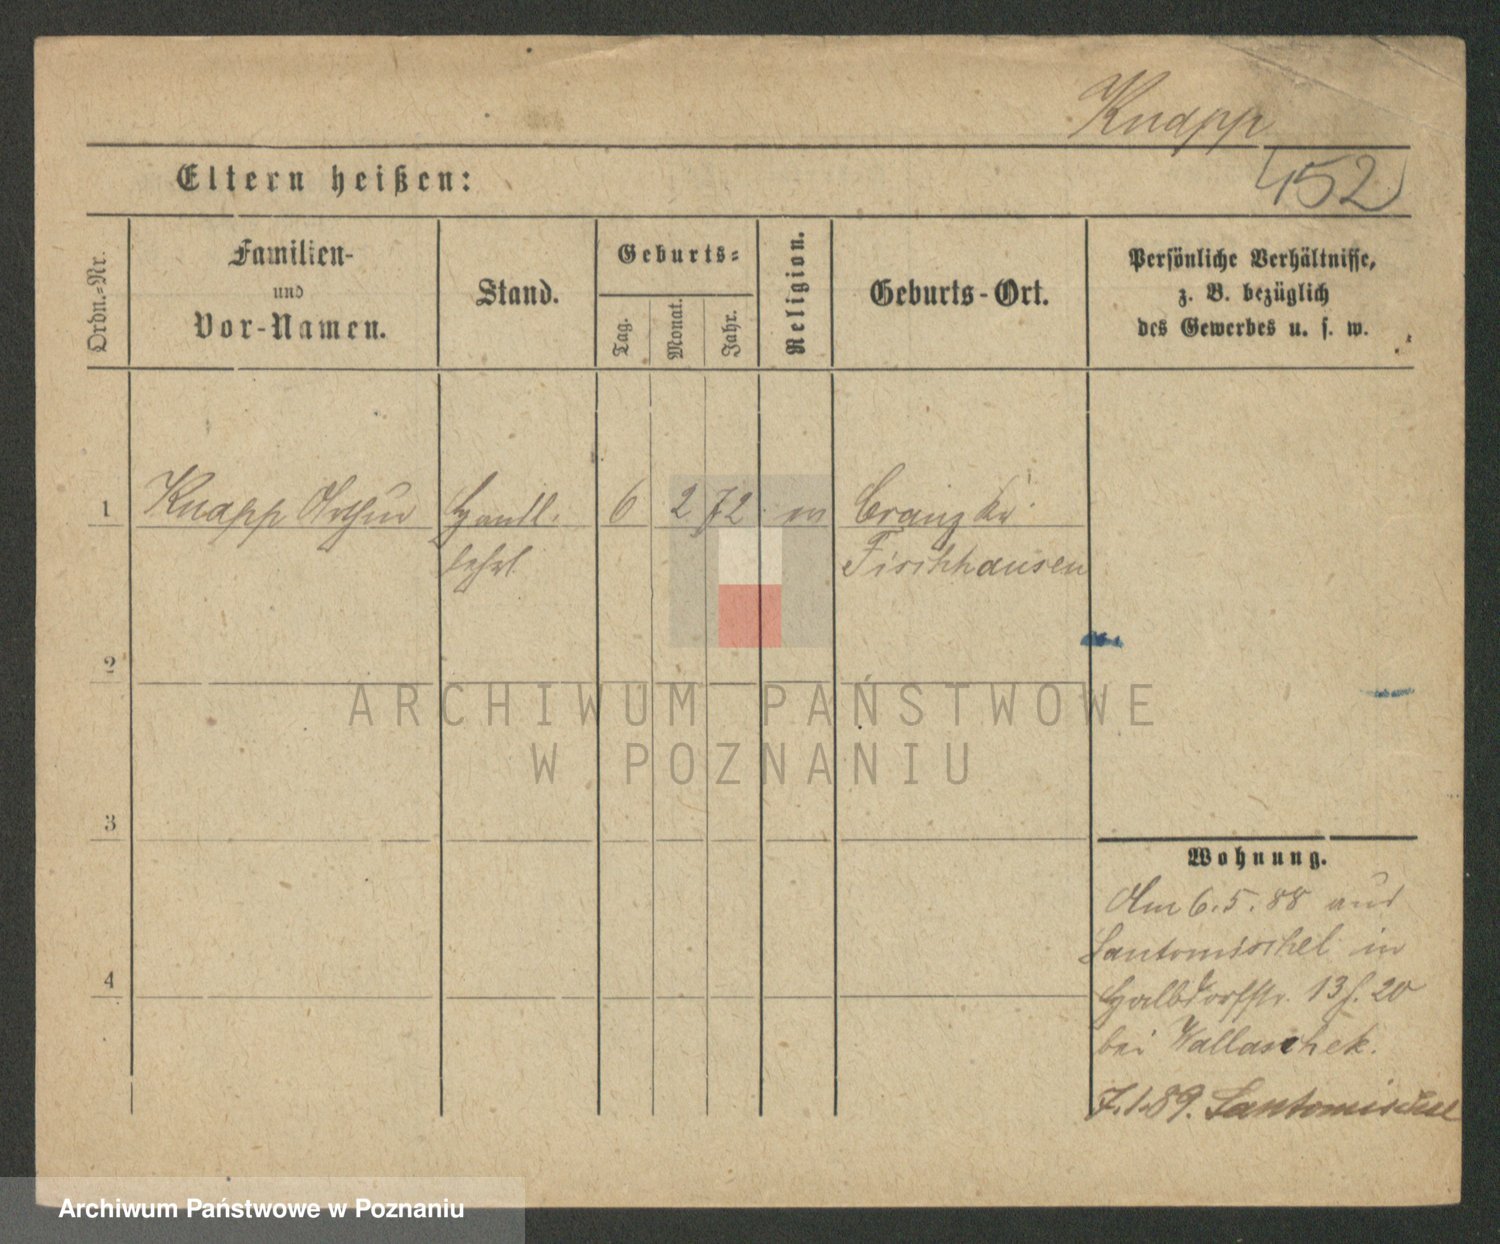 Knapp
Eltern heißen:
452
Ordn.-Nr.
Familien-
und
Vor-Namen.
Stand.
Geburts-
Tag.
Monat.
Jahr.
Religion.
Geburts-Ort.
Persönliche Verhältnisse,
z. B. bezüglich
des Gewerbes u. s. w.
1 Knapp Arthur Handl. 6 2 72 Cranz Kr.
lehrl. Fischhausen
2
3
4
Wohnung.
Am 6.5.88 aus
Santomischel in
Halbdorfstr. 13 20
bei Wallaschek.
7.1.89. Santomischel
ARCHIWUM PAŃSTWOWE
W POZNANIU
Archiwum Państwowe w Poznaniu